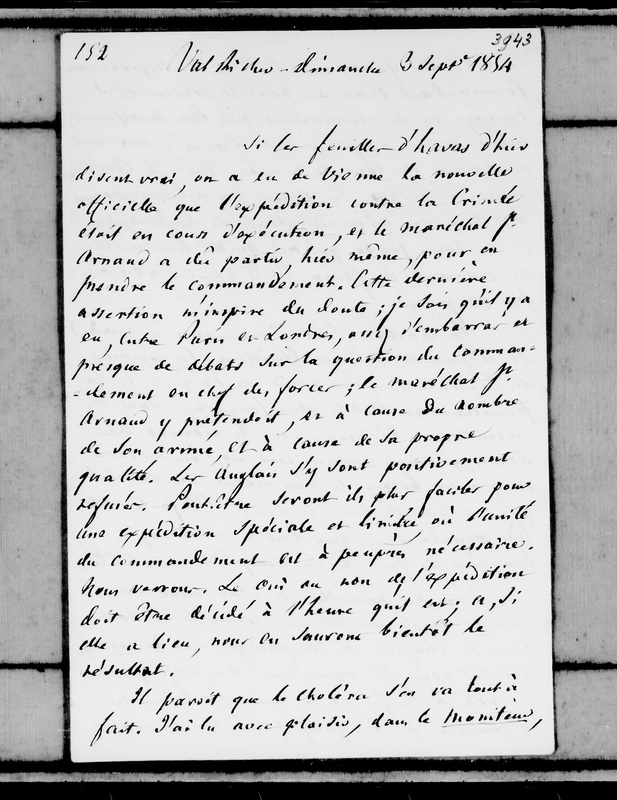 152
3943
Val Richer - Dimanche 3 Septe 1854
Si les feuilles d'havas d'hier
disent vrai, on a eu de Vienne la nouvelle
officielle que l'expédition contre la Crimée
était en cours d'exécution, et le maréchal St
Arnaud a dû partir hier même, pour en
prendre le commandement. Cette dernière
assertion m'inspire du doute ; je sais qu'il y a
eu, entre Paris et Londres, assez d'embarras et
presque de débats sur la question du comman-
-dement en chef des forces ; le maréchal St
Arnaud y prétendoit, et à cause du nombre
de son armée, et à cause de sa propre
qualité. Les Anglais s'y sont positivement
refusés. Peut-être seront ils plus faciles pour
une expédition spéciale et limitée où l'unité
du commandement est à peu près nécessaire.
Nous verrons. Le oui ou non de l'expédition
doit être décidé à l'heure qu'il est ; et, si
elle a lieu, nous en saurons bientôt le
résultat.
Il paroit que le choléra s'en va tout à
fait. J'ai lu avec plaisir, dans le Moniteur,